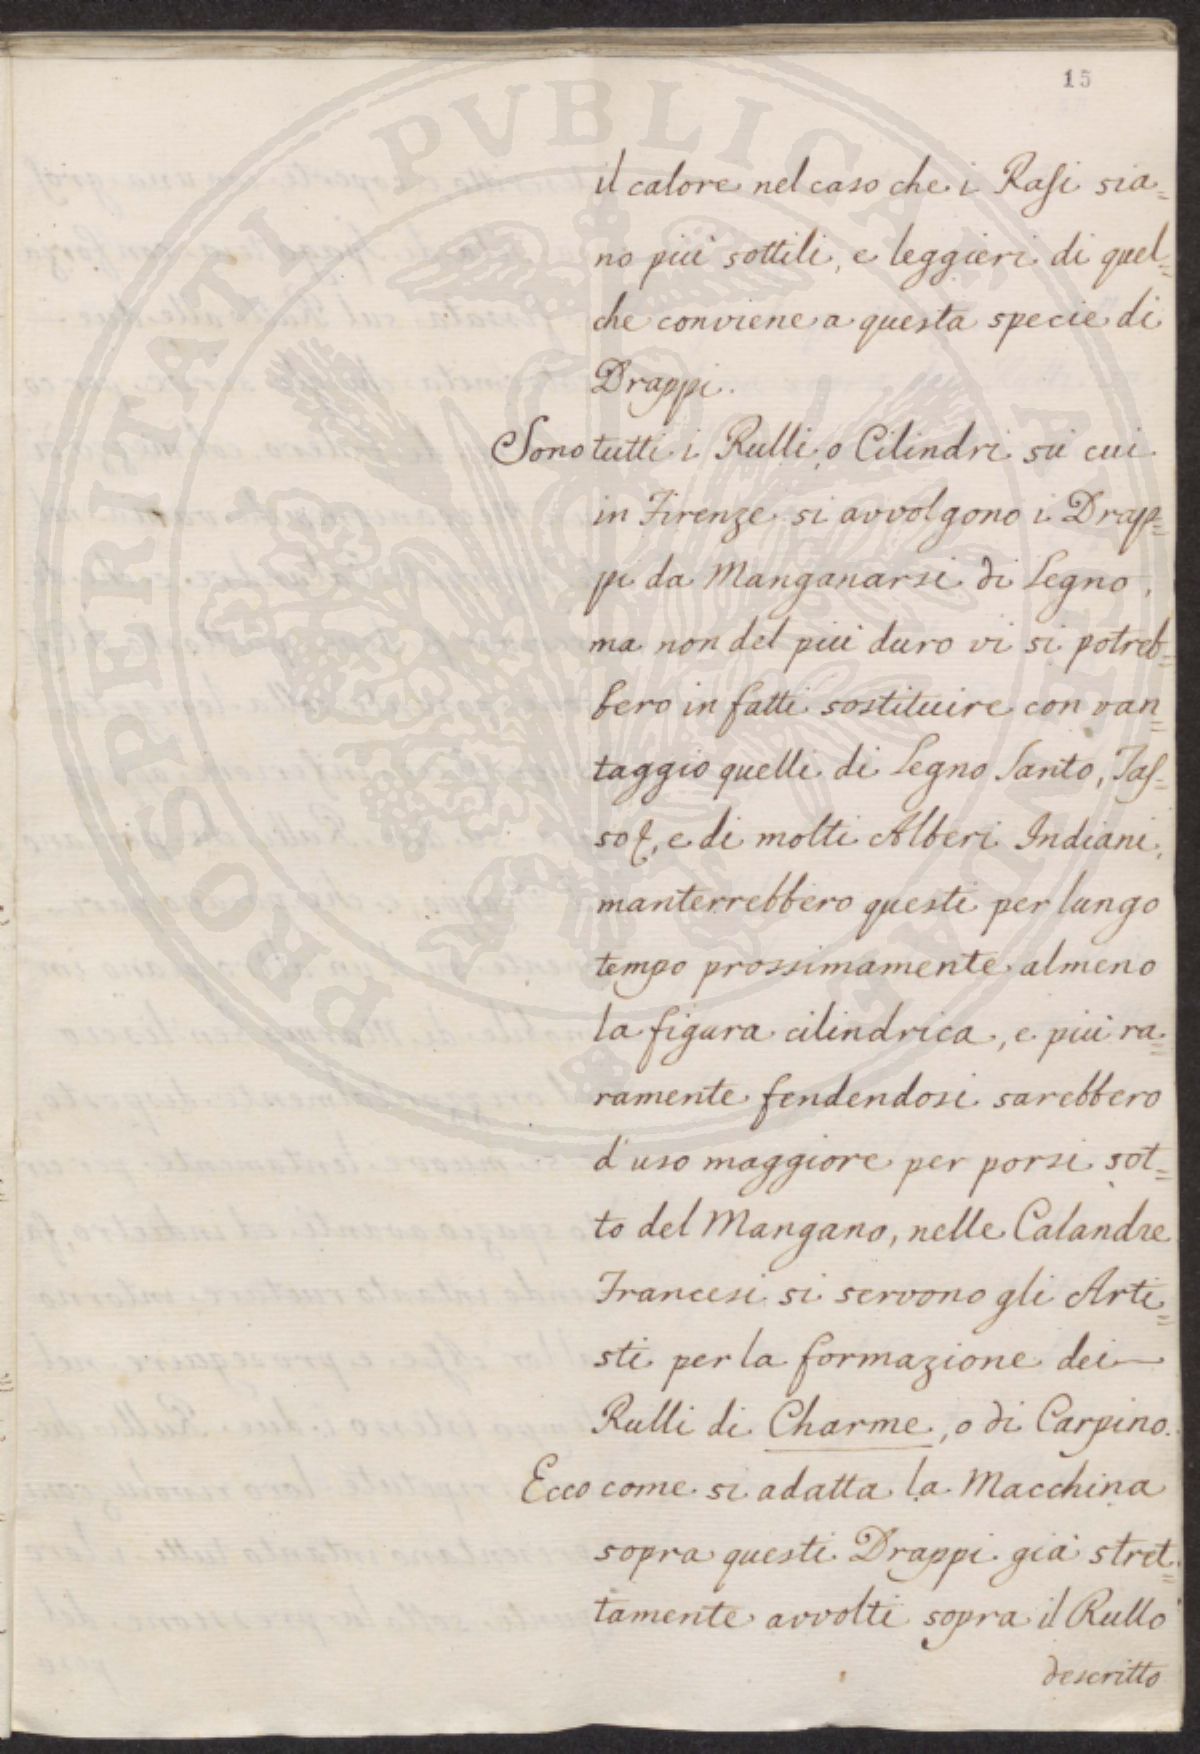 15
il calore nel caso che i Rasi sia=
no più sottili, e leggieri di quel=
che conviene a questa specie di
Drappi.
Sono tutti i Rulli, o Cilindri su cui
in Firenze si avvolgono i Drap=
pi da Manganarsi di Legno,
ma non del più duro vi si potreb=
bero in fatti sostituire con van=
taggio quelli di Legno Santo, Tas=
so &, e di molti Alberi Indiani,
manterrebbero questi per lungo
tempo prossimamente almeno
la figura cilindrica, e più ra=
ramente fendendosi sarebbero
d'uso maggiore per porsi sot=
to del Mangano, nelle Calandre
Francesi si servono gli Arti=
sti per la formazione dei—
Rulli di Charme, o di Carpino.
Ecco come si adatta la Macchina
sopra questi Drappi già stret=
tamente avvolti sopra il Rullo
descritto
PROSPERITATI PUBLICAE AUGENDAE